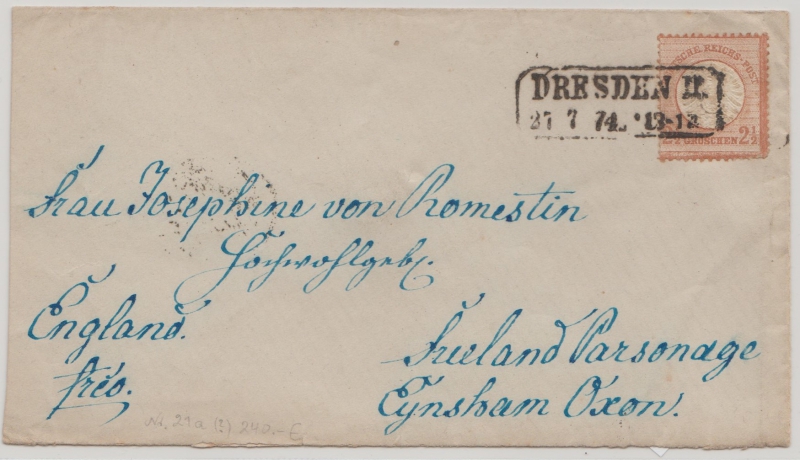 DEUTSCHE REICHS-POST
2½ GROSCHEN 2½
DRESDEN II.
27 7 74. 12-1N
Frau Josephine von Romestin
Hochwohlgeb.
England.
frco.
Freeland Parsonage
Eynsham Oxon.
Nr. 21a (?) 240.- €